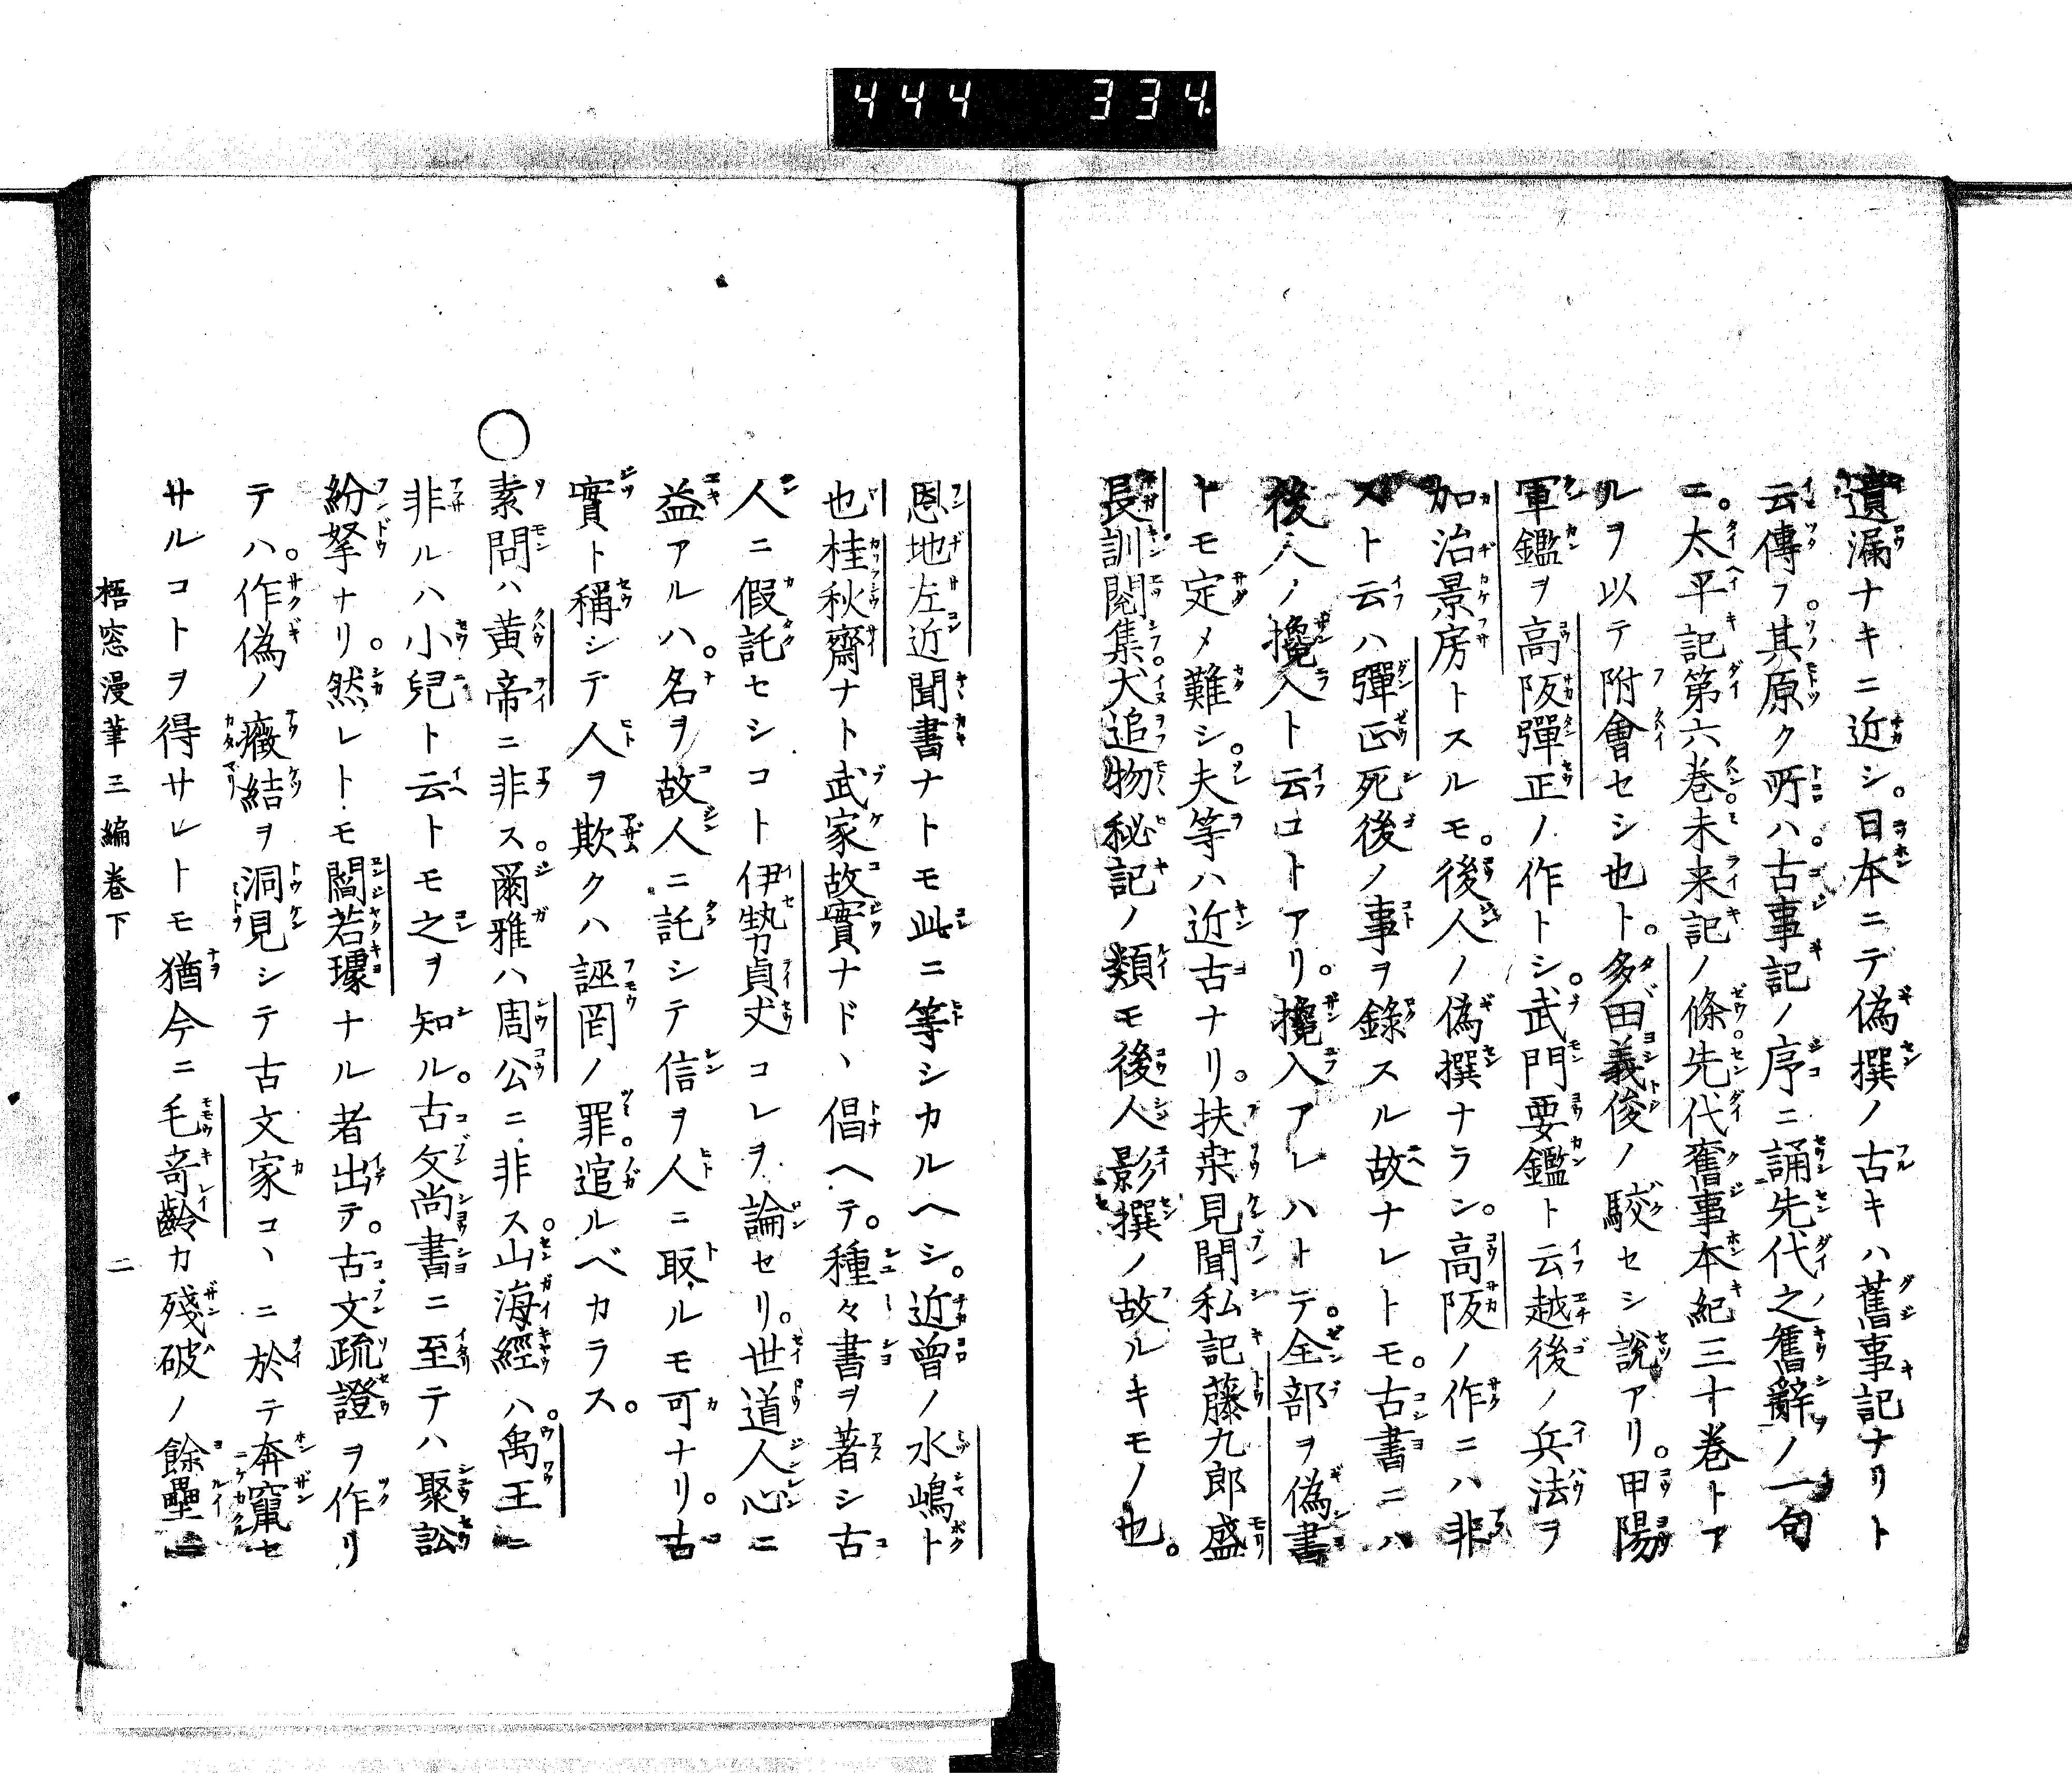 444 334
遺漏ナキニ近シ。日本ニテ偽撰ノ古キハ舊事記ナリト
云傳フ。其原ク所ハ。古事記ノ序ニ誦先代之舊辭ノ一句
ニ。太平記第六巻未来記ノ條。先代奮事本紀三十巻トア
ルヲ以テ附會セシ也ト。多田義俊ノ駮セシ説アリ。甲陽
軍鑑ヲ高阪彈正ノ作トシ。武門要鑑ト云越後ノ兵法ヲ
加治景房トスルモ。後人ノ偽撰ナラン。高阪ノ作ニハ非
スト云ハ彈正死後ノ事ヲ錄スル故ナレトモ。古書ニハ
後人ノ攙入ト云コトアリ。攙入アレハトテ。全部ヲ偽書
トモ定メ難シ。夫等ハ近古ナリ。扶桒見聞私記藤九郎盛
長訓閱集。犬追物秘記ノ類モ後人影撰ノ故ルキモノ也。
恩地左近聞書ナトモ此ニ等シカルヘシ。近曽ノ水嶋ト
也桂秋齋ナト武家故實ナドヽ倡ヘテ。種々書ヲ著シ古
人ニ假託セシコト伊勢貞丈コレヲ論セリ。世道人心ニ
益アルハ。名ヲ故人ニ託シテ信ヲ人ニ取ルモ可ナリ。古
實ト稱シテ人ヲ欺クハ誣罔ノ罪。追ルベカラス。
○素問ハ黄帝ニ非ス。爾雅ハ周公ニ非ス。山海經ハ。禹王ニ
非ルハ小兒ト云トモ之ヲ知ル。古文尚書ニ至テハ聚訟
紛拏ナリ。然レトモ閻若璩ナル者出テ。古文疏證ヲ作リ
テハ。作偽ノ癥結ヲ洞見シテ古文家コヽニ於テ奔竄セ
サルコトヲ得サレトモ猶今ニ毛竒齡カ殘破ノ餘壘ニ
梧窓漫筆三編巻下 二